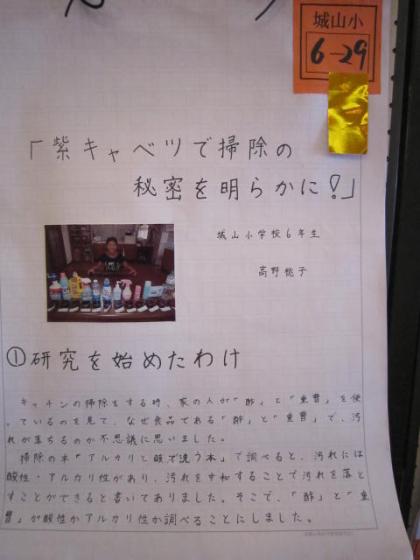 城山小
6-29
「紫キャベツで掃除の
秘密を明らかに!」
城山小学校6年生
高野桃子
①研究を始めたわけ
キッチンの掃除をする時、家の人が「酢」と「重曹」を使
っているのを見て、なぜ食品である「酢」と「重曹」で、汚
れが落ちるのか不思議に思いました。
掃除の本「アルカリと酸で洗う本」で調べると、汚れには
酸性・アルカリ性があり、汚れを中和することで汚れを落と
すことができると書いてありました。そこで、「酢」と「重
曹」が酸性かアルカリ性か調べることにしました。